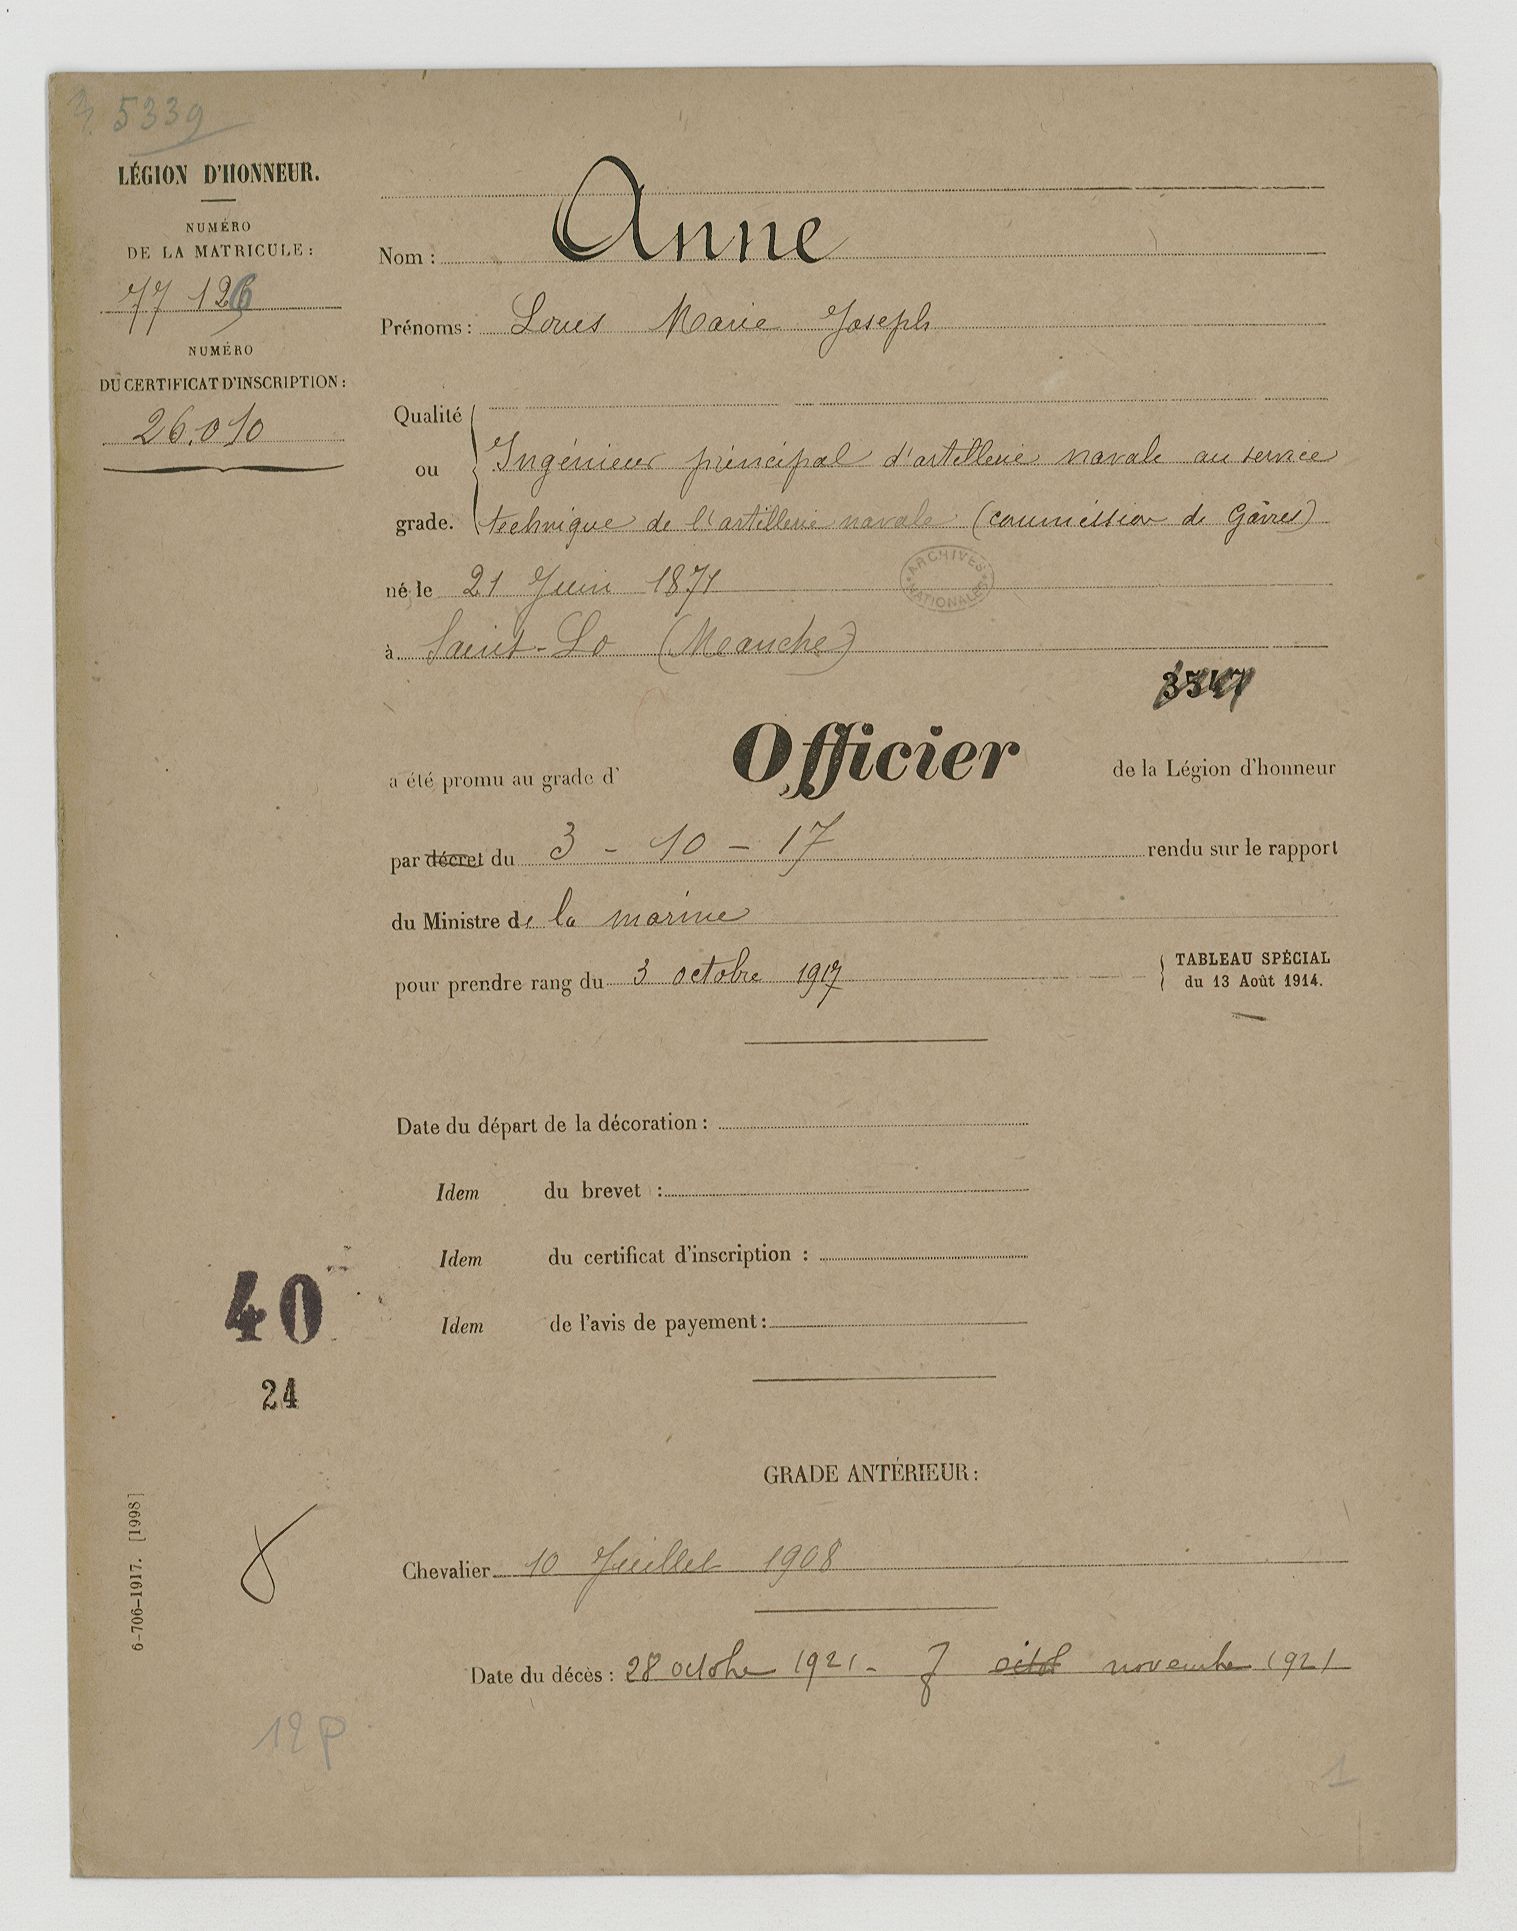 5339
LÉGION D'HONNEUR.
NUMÉRO
DE LA MATRICULE :
77 126
NUMÉRO
DU CERTIFICAT D'INSCRIPTION :
26.010
Nom : Anne
Prénoms : Louis Marie Joseph
Qualité
ou
grade.
Ingénieur principal d'artillerie navale au service
technique de l'artillerie navale (commission de Gâvres)
né le 21 Juin 1871
ARCHIVES NATIONALES
à Saint-Lo (Manche)
a été promu au grade d' Officier de la Légion d'honneur
par décret du 3 - 10 - 17 rendu sur le rapport
du Ministre de la marine
pour prendre rang du 3 octobre 1917
TABLEAU SPÉCIAL
du 13 Août 1914.
Date du départ de la décoration :
Idem du brevet :
Idem du certificat d'inscription :
Idem de l'avis de payement :
40
24
GRADE ANTÉRIEUR :
Chevalier 10 Juillet 1908
Date du décès : 28 octobre 1921 - novembre 1921
6-706-1917. [1998]
12 p
1